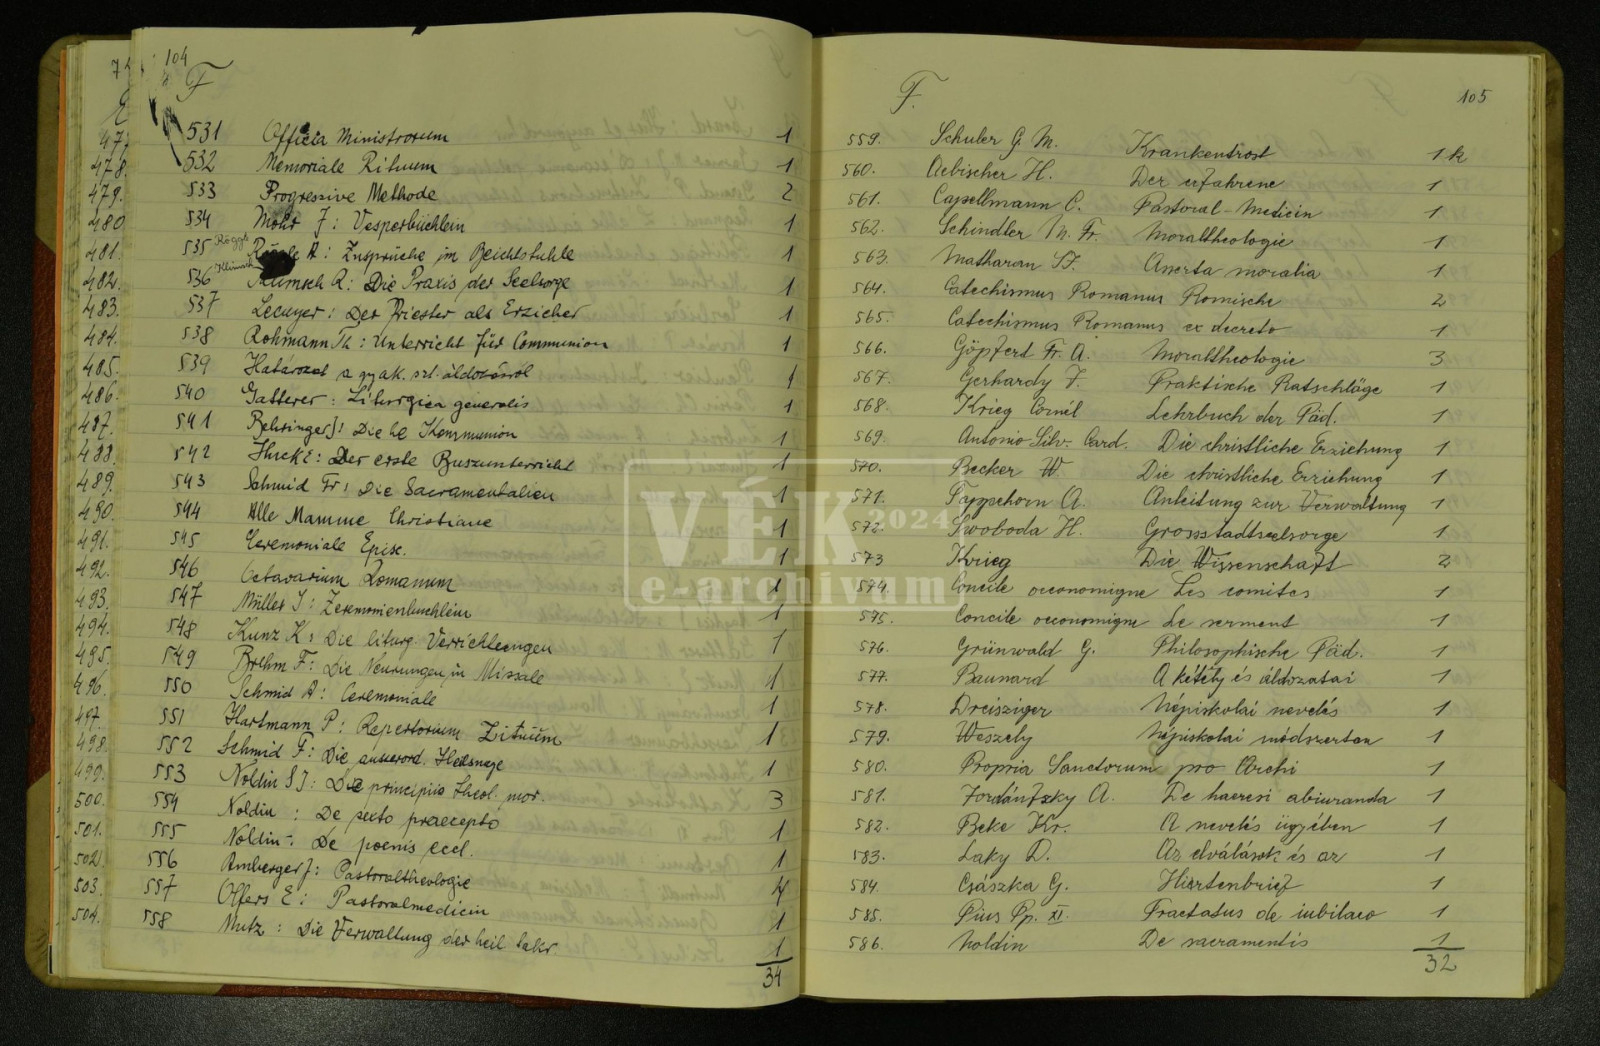 104
F
531 Officia Ministrorum 1
532 Memoriale Rituum 1
533 Progressive Methode 2
534 Mohr J: Vesperbüchlein 1
535 Röggl A: Zusprüche im Beichtstuhle 1
536 Klimsch R: Die Praxis der Seelsorge 1
537 Lecuyer: Der Priester als Erzieher 1
538 Rohmann Th: Unterricht für Communion 1
539 Határozat a gyak. szt. áldozásról 1
540 Gatterer: Liturgica generalis 1
541 Behringer J: Die hl Kommunion 1
542 Huck E: Der erste Buszunterricht 1
543 Schmid Fr: Die Sacramentalien 1
544 Alle Mamme Christiane 1
545 Ceremoniale Episc. 1
546 Octavarium Romanum 1
547 Müller J: Zeremonienbuchlein 1
548 Kunz K: Die liturg. Verrichtungen 1
549 Brehm F: Die Neurungen in Missale 1
550 Schmid A: Ceremoniale 1
551 Hartmann P: Repertorium Rituum 1
552 Schmid F: Die ausserord. Heilswege 1
553 Noldin S J: De principiis theol. mor. 3
554 Noldin: De sexto praecepto 1
555 Noldin: De poenis eccl. 1
556 Amberger J: Pastoraltheologie 4
557 Olfers E: Pastoralmedicin 1
558 Mutz: Die Verwaltung der heil Sakr. 1
34
74
E
477
478.
479.
480
481.
482.
483.
484.
485.
486.
487.
488.
489.
490.
491.
492.
493.
494.
495.
496.
497.
498.
499.
500.
501.
502.
503.
504.
F. 105
559. Schuler G. M. Krankentrost 1 k
560. Aebischer H. Der erfahrene 1
561. Capellmann C. Pastoral-Medicin 1
562. Schindler M. Fr. Moraltheologie 1
563. Matharan S.J. Asserta moralia 1
564. Catechismus Romanus Romische 2
565. Catechismus Romanus ex decreto 1
566. Göpfert Fr. A. Moraltheologie 3
567. Gerhardy J. Praktische Ratschläge 1
568. Krieg Cornél Lehrbuch der Päd. 1
569. Antonio Silv. Card. Die christliche Erziehung 1
570. Becker W Die christliche Erziehung 1
571. Tappehorn A. Anleitung zur Verwaltung 1
572. Swoboda H. Grossstadtseelsorge 1
573 Krieg Die Wissenschaft 2
574. Concile oeconomigne Les comites 1
575. Concile oeconomigne Le serment 1
576. Grünwald G. Philosophische Päd. 1
577. Baunard A kétely és áldozatai 1
578. Dreisziger Népiskolai nevelés 1
579. Weszely Népiskolai módszertan 1
580. Propria Sanctorum pro Archi 1
581. Jordánszky A. De haeresi abiuranda 1
582. Beke Kr. A nevelés ügyében 1
583. Laky D. Az elválások és az 1
584. Császka G. Hirtenbrief 1
585. Pius Pp. XI. Tractatus de iubilaeo 1
586. Noldin De sacramentis 1
32
VÉK 2024
e-archivum